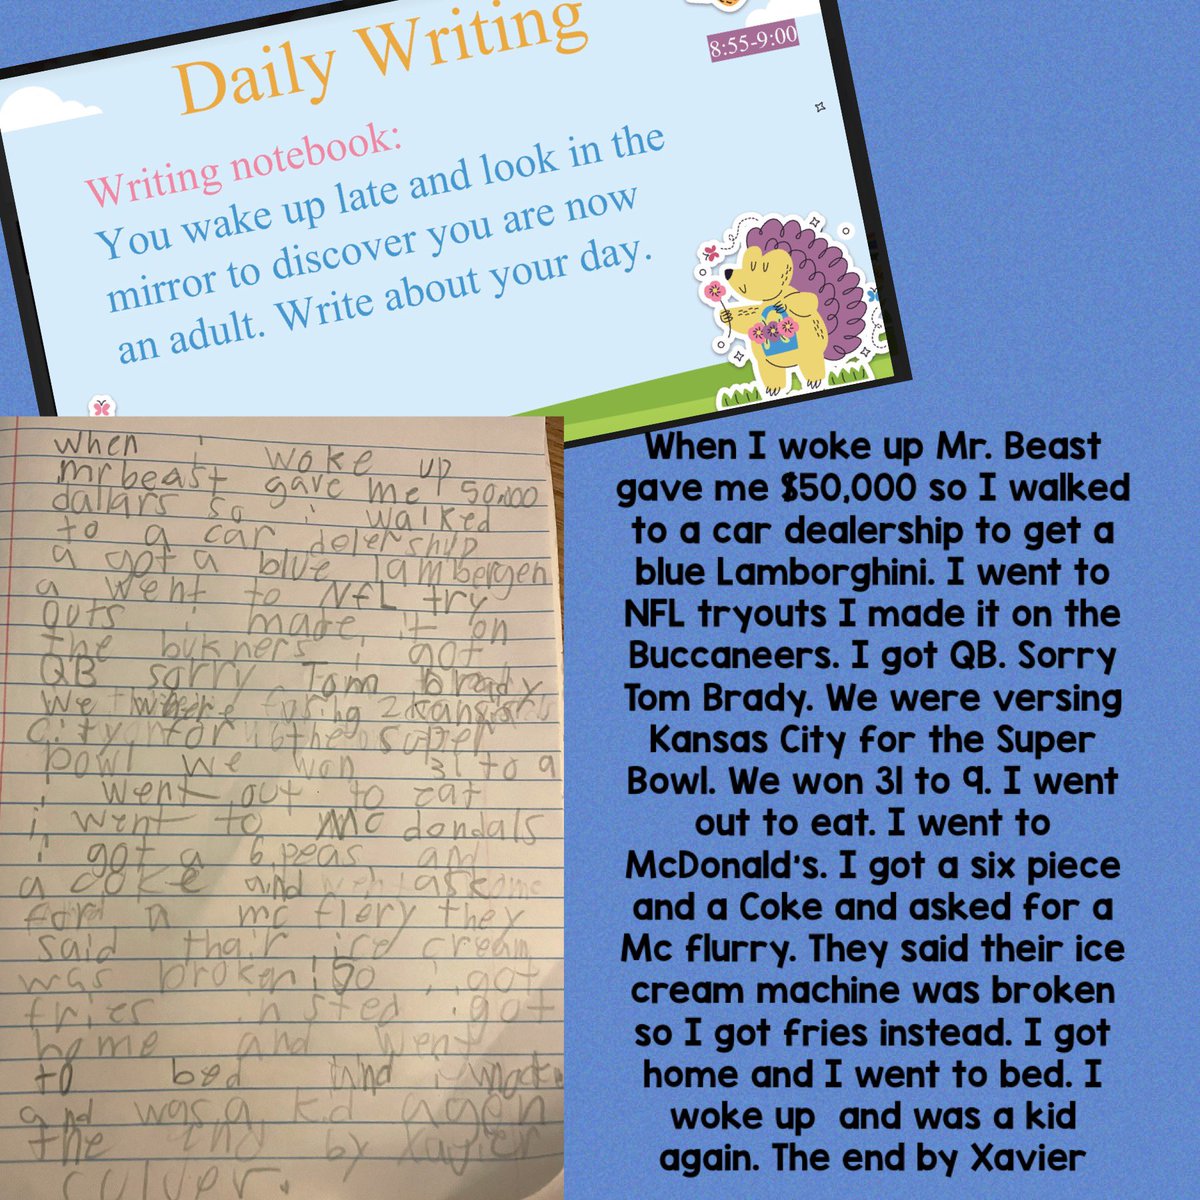 Daily Writing
8:55-9:00
Writing notebook:
You wake up late and look in the
mirror to discover you are now
an adult. Write about your day.
when i woke up
mr beast gave me 50,000
dallars so i walked
to a car delership
a got a blue lambergen
a went to NFL try
outs i made it on
the bukners i got
QB sorry Tom brady
we were
city for the super
bowl we won 31 to 9
i went out to eat
i went to Mc dondals
i got a 6 peas and
a coke and ask
ford a mc flery they
said thair ice cream
was broken so i got
fries insted i got
home and went
to bed and i wock
and was a kid agen
the end by Xavier
culver.
When I woke up Mr. Beast
gave me $50,000 so I walked
to a car dealership to get a
blue Lamborghini. I went to
NFL tryouts I made it on the
Buccaneers. I got QB. Sorry
Tom Brady. We were versing
Kansas City for the Super
Bowl. We won 31 to 9. I went
out to eat. I went to
McDonald's. I got a six piece
and a Coke and asked for a
Mc flurry. They said their ice
cream machine was broken
so I got fries instead. I got
home and I went to bed. I
woke up and was a kid
again. The end by Xavier